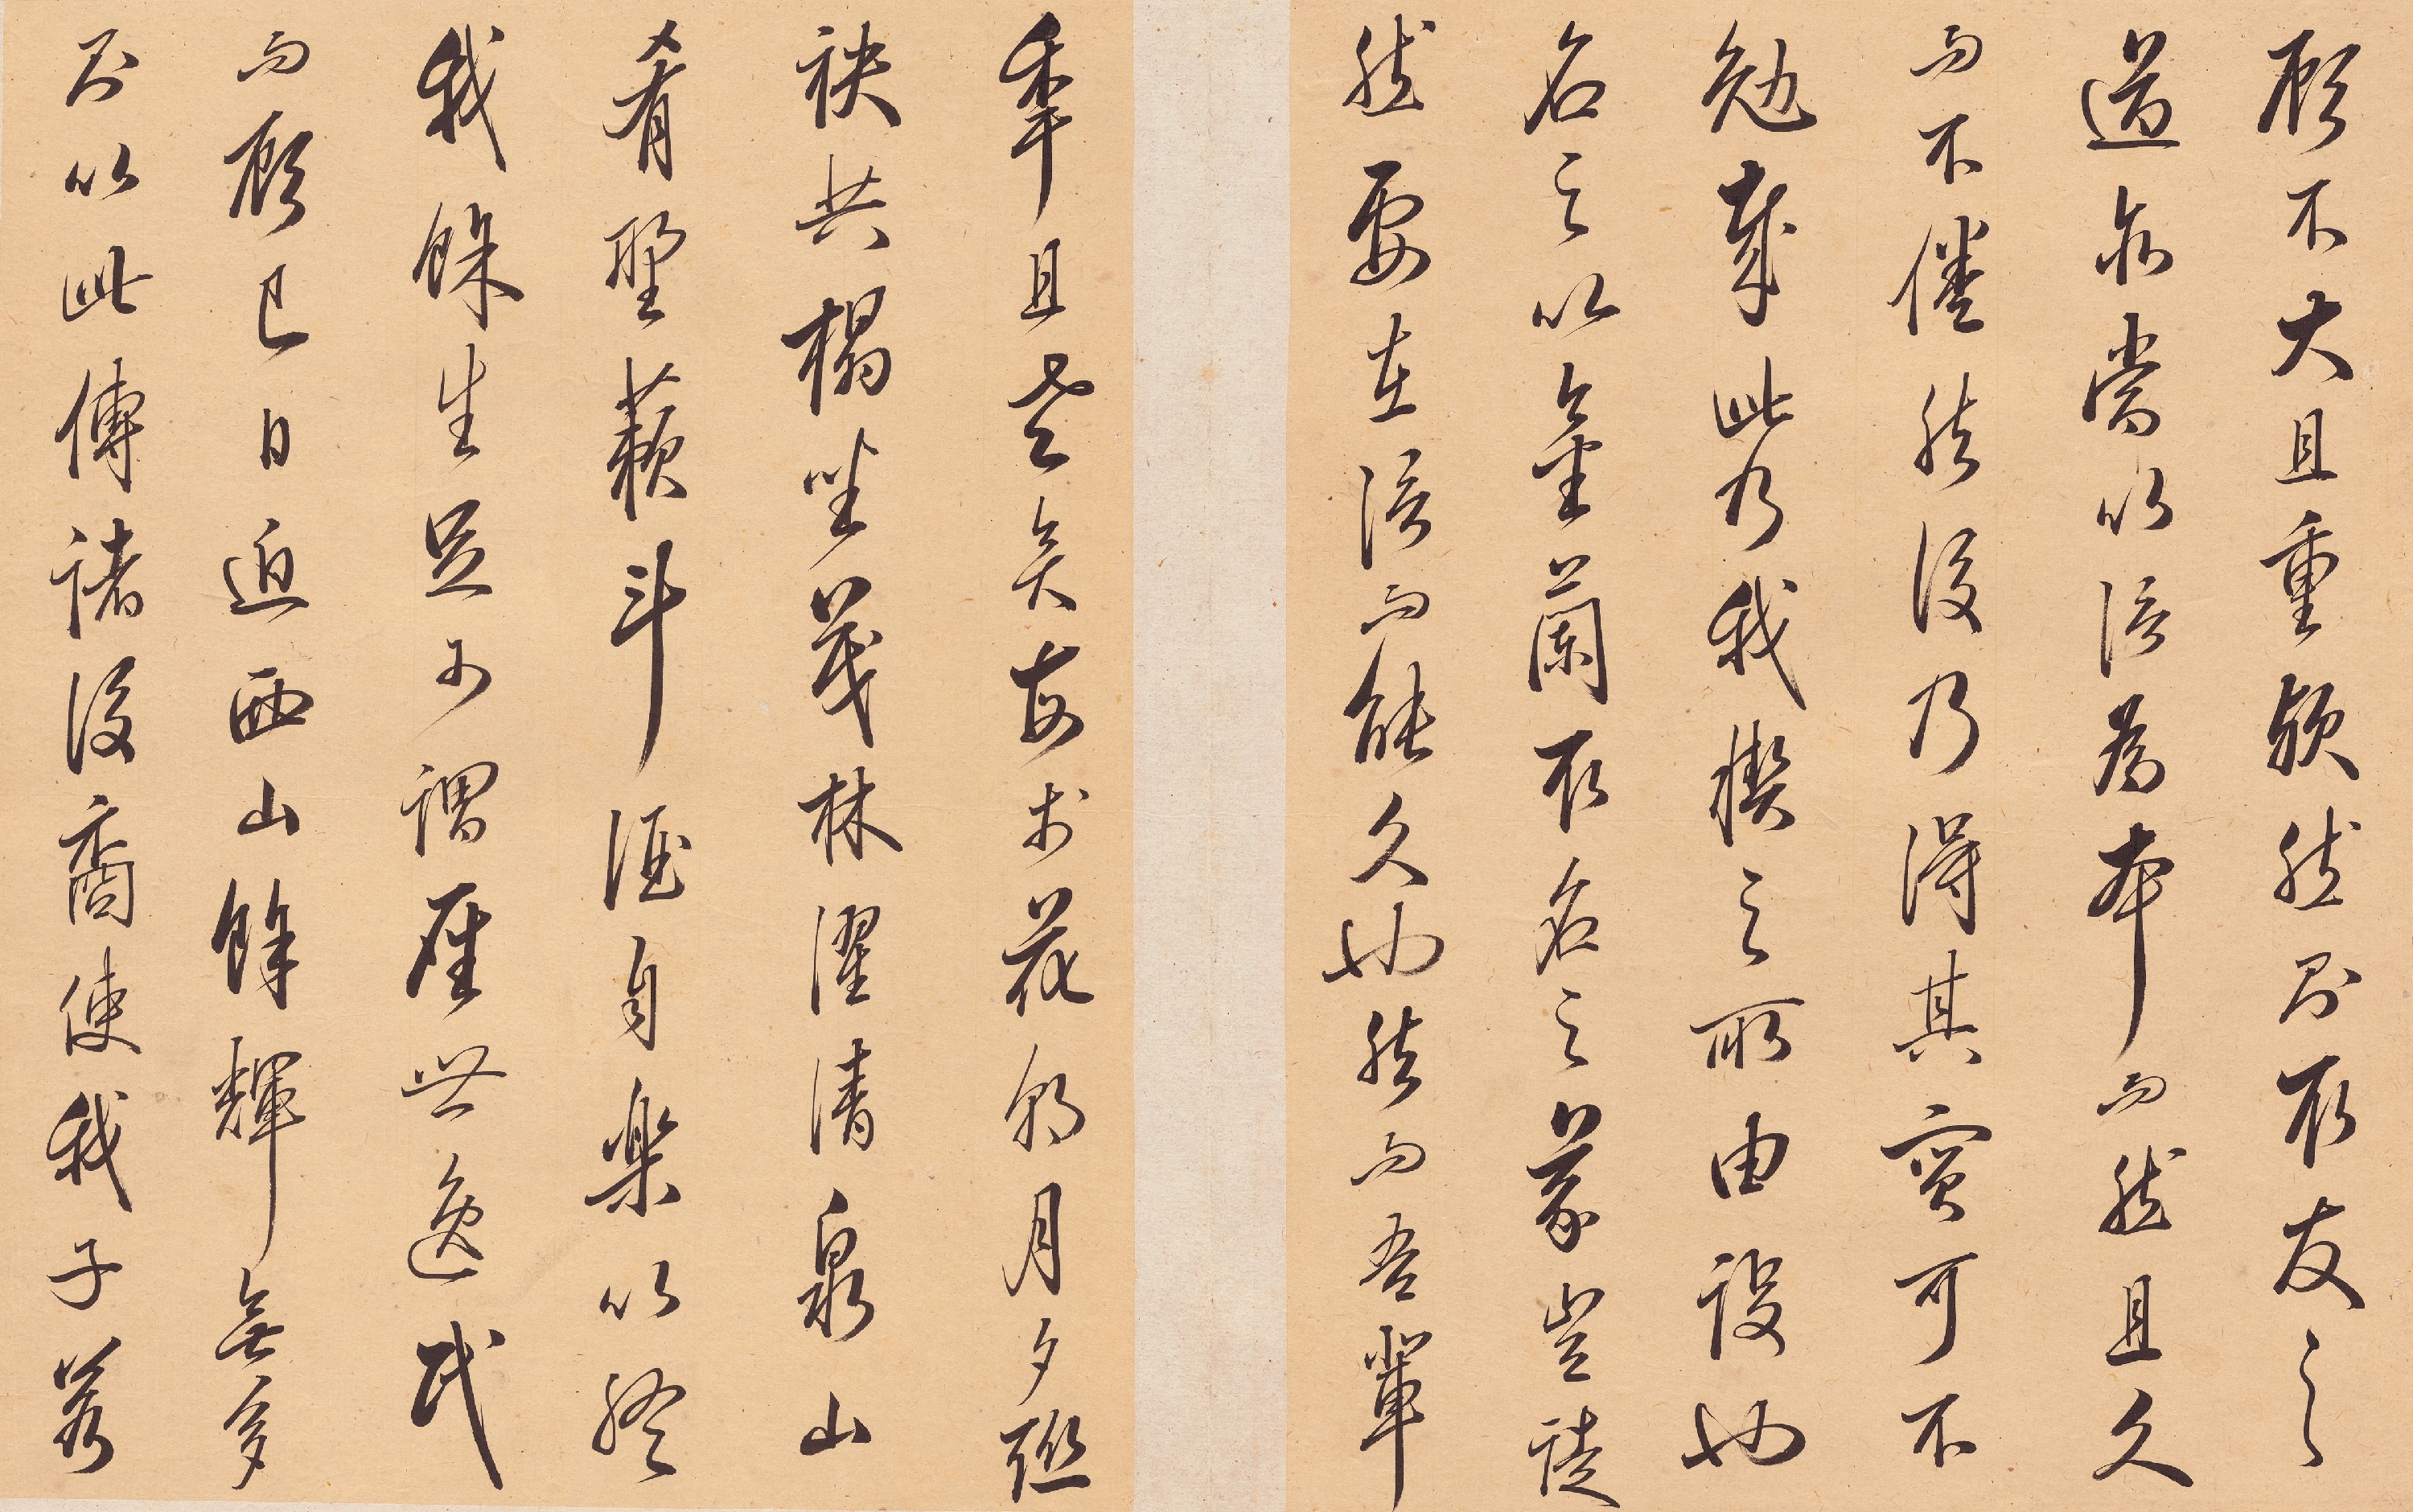 顧不大且重歟然則取友之
道亦當以信為本而然且久
而不倦然後乃得其實可不
勉哉此乃我楔之所由設也
名之以金蘭取名之義豈徒
然要在信而能久也然而吾輩
年且老矣每於花朝月夕聯
袂共榻坐茂林濯清泉山
肴野蔌斗酒自樂以終
我餘生足可謂曠世逸民
而顧已日迫西山餘輝無多
則以此傳諸後裔使我子若